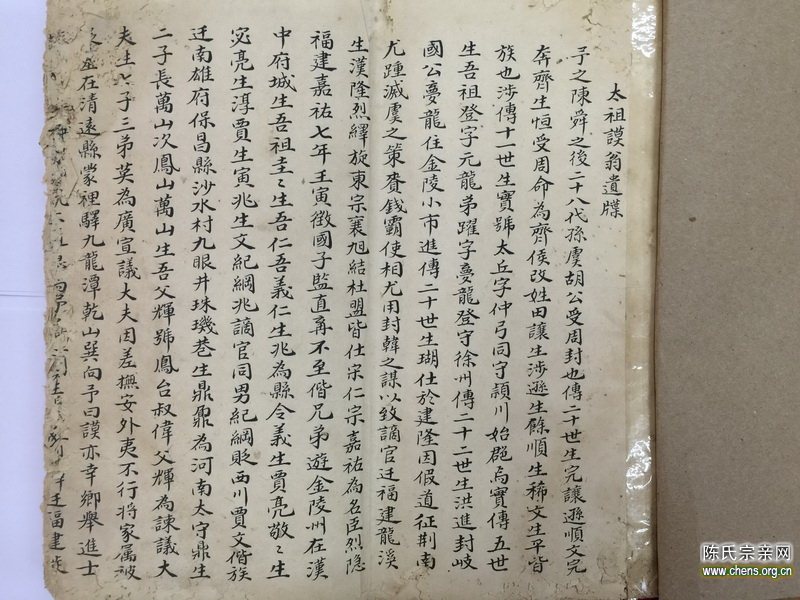 太祖謨翁遺牒
予之陳舜之後二十八代孫虞胡公受周封也傳二十世生完讓遜順文完
奔齊生恒受周命為齊侯改姓田讓生涉遜生餘順生稀文生平皆
族也涉傳十一世生實號太丘字仲弓同守頴川始起焉實傳五世
生吾祖登字元龍弟躍字夢龍登守徐州傳二十二世生洪進封岐
國公夢龍住金陵小市進傳二十世生瑚仕於建隆因假道征荆南
尤踵滅虞之策賚錢霸使相尤用封韓之謀以致謫官迁福建龍溪
生漢隆烈繹旋東宗襄旭結杜盟皆仕宋仁宗嘉祐為名臣烈隐
福建嘉祐七年王寅徵國子監直再不至偕兄弟遊金陵州在漢
中府城生吾祖圭圭生吾仁吾義仁生兆為縣令義生賈亮敬敬生
宓亮生淳賈生寅兆生文紀綱兆謫官同男紀綱貶西川賈文偕族
迁南雄府保昌縣沙水村九眼井珠璣巷生鼎鼐為河南太守鼎生
二子長萬山次鳳山萬山生吾父輝號鳳台叔偉父輝為諫議大
夫生六子三弟英為廣宣議大夫因差撫安外夷不行將家属被
在清遠縣蒙裡驛九龍潭乾山巽向予曰謨亦幸鄉舉進士
王福建
陈氏宗亲网
www.chens.org.cn